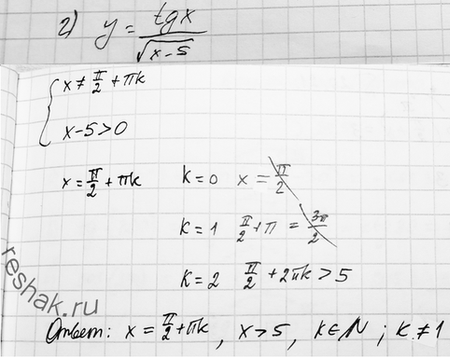 2) y = tgx / √(x-5)
{ x ≠ π/2 + πk
x-5>0
x = π/2 + πk k=0 x = π/2
k=1 π/2 + π = 3π/2
k=2 π/2 + 2πk > 5
reshak.ru
Ответ: x = π/2 + πk, x>5, k∈N; k≠1